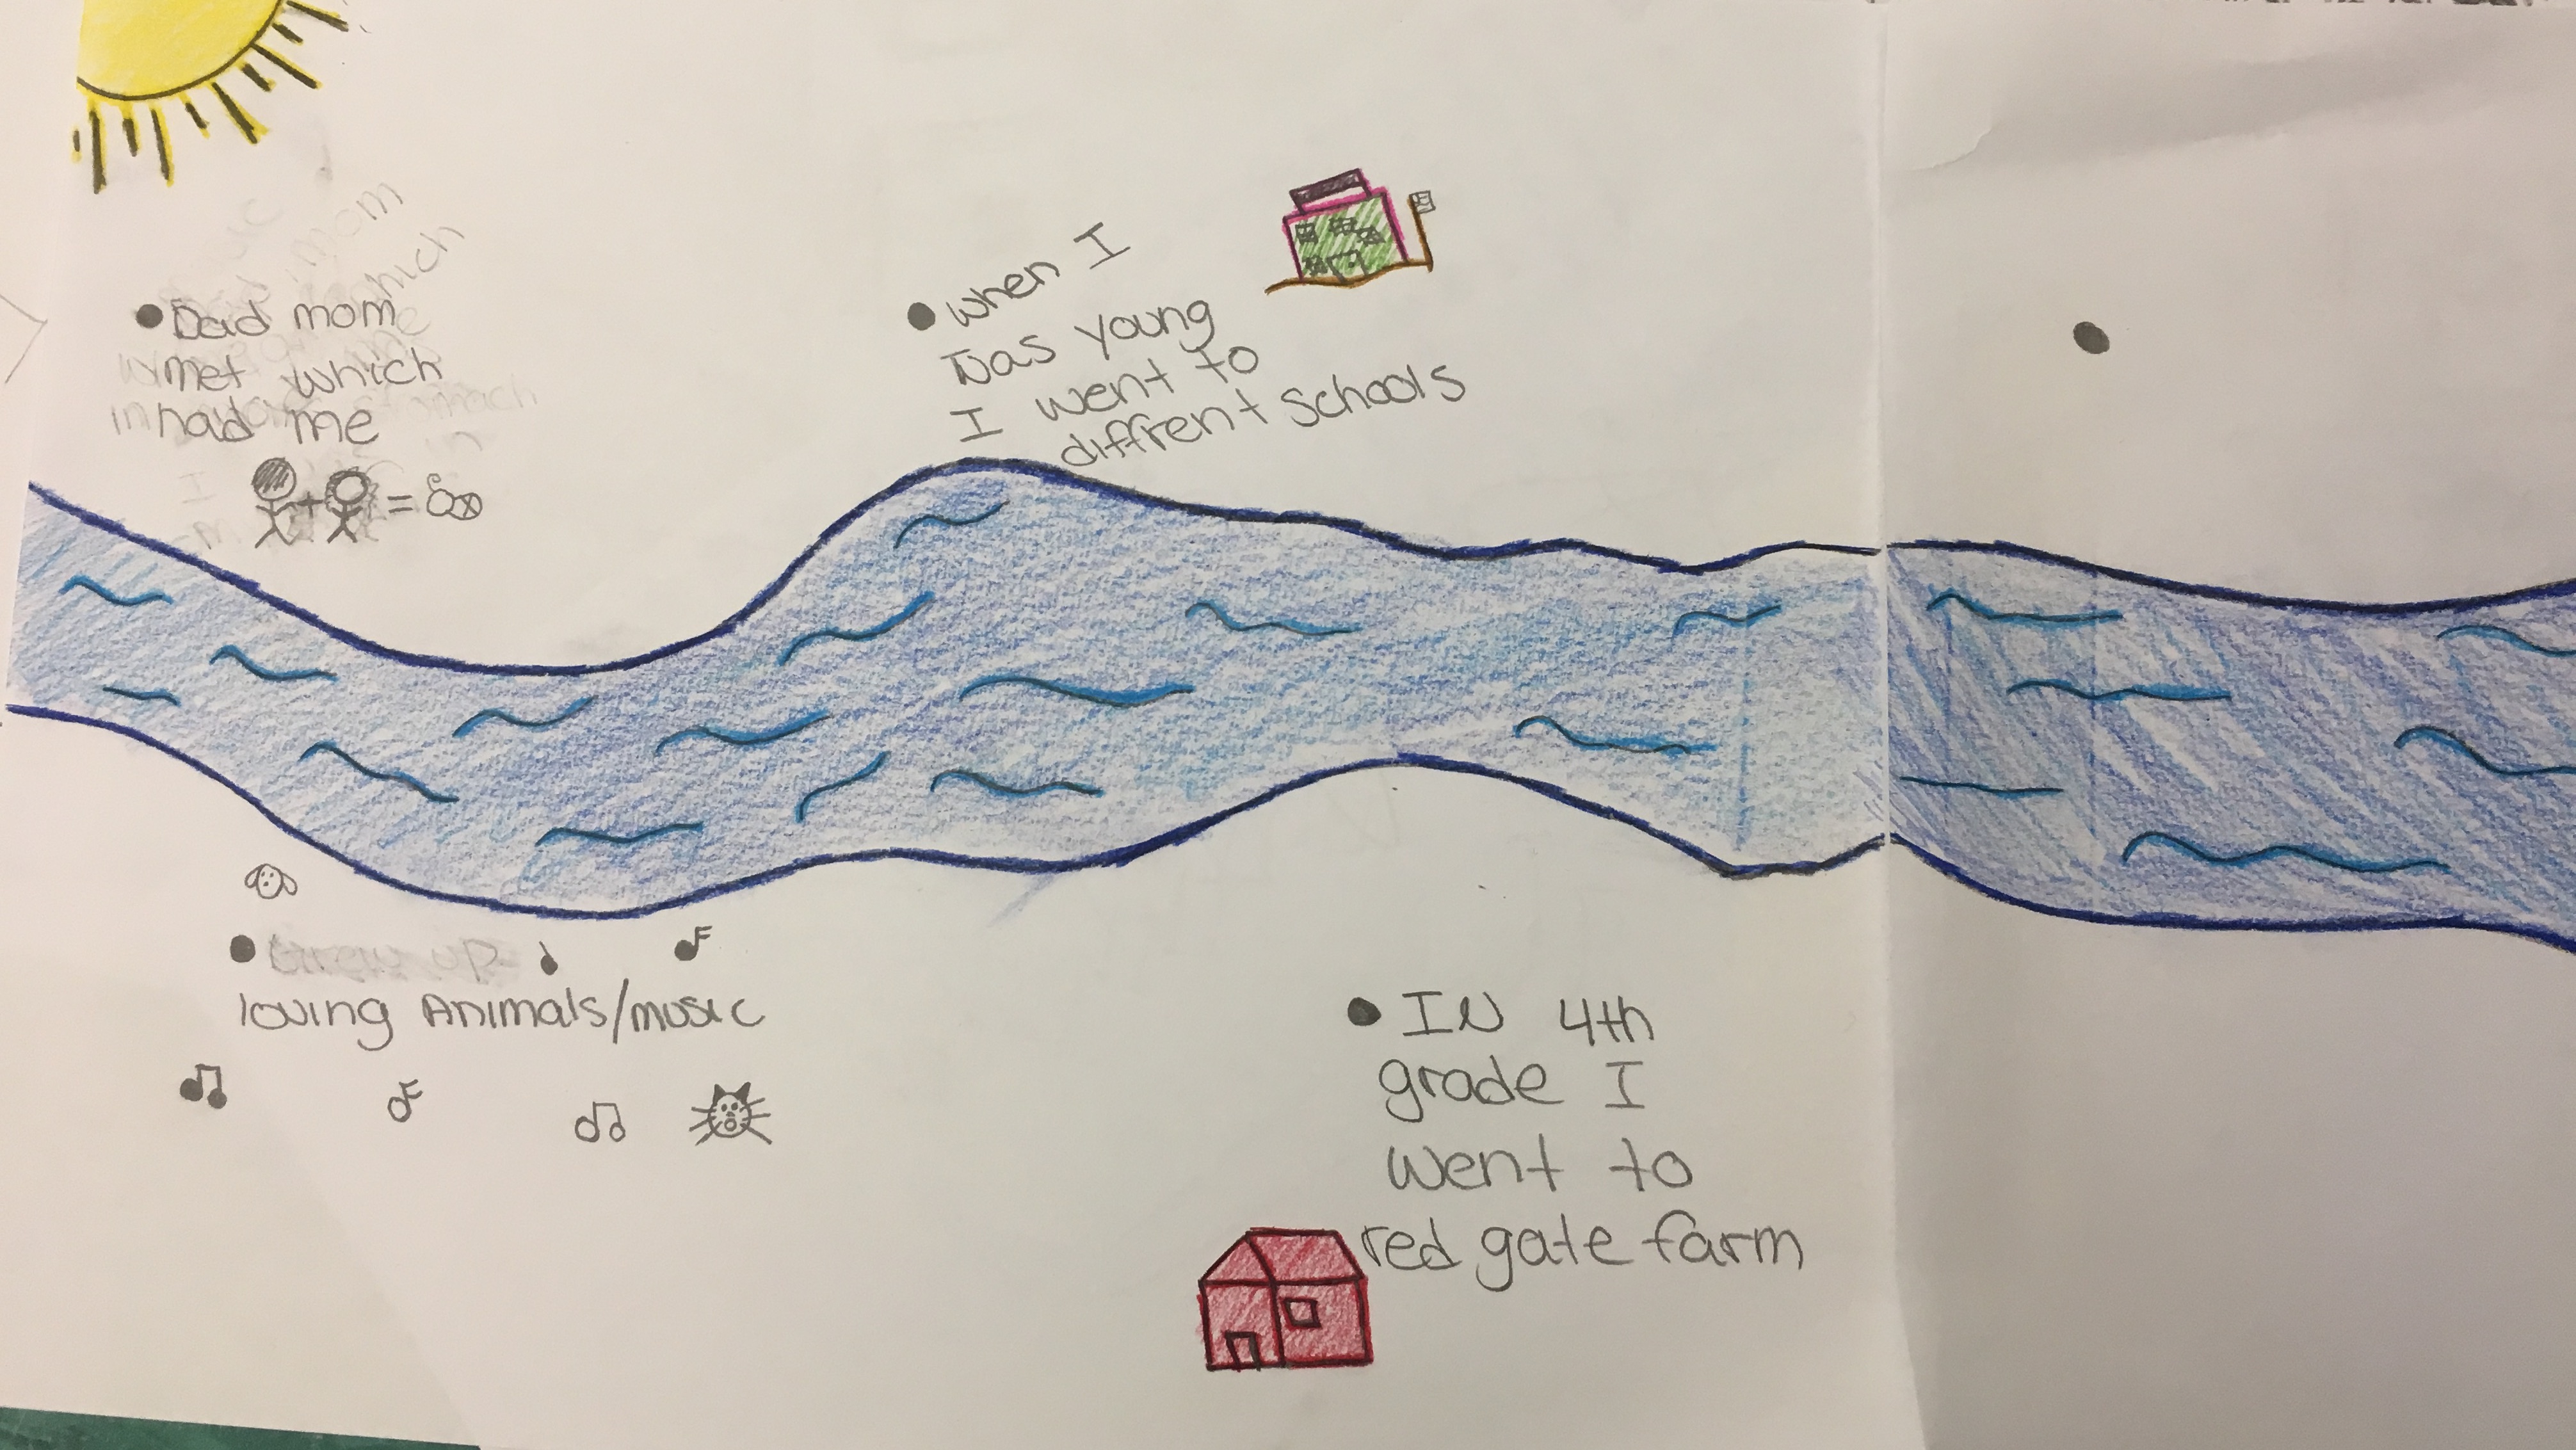 Dad mom
met which
had me
when I
was young
I went to
diffrent schools
Grew up
loving Animals/music
IN 4th
grade I
went to
red gate farm